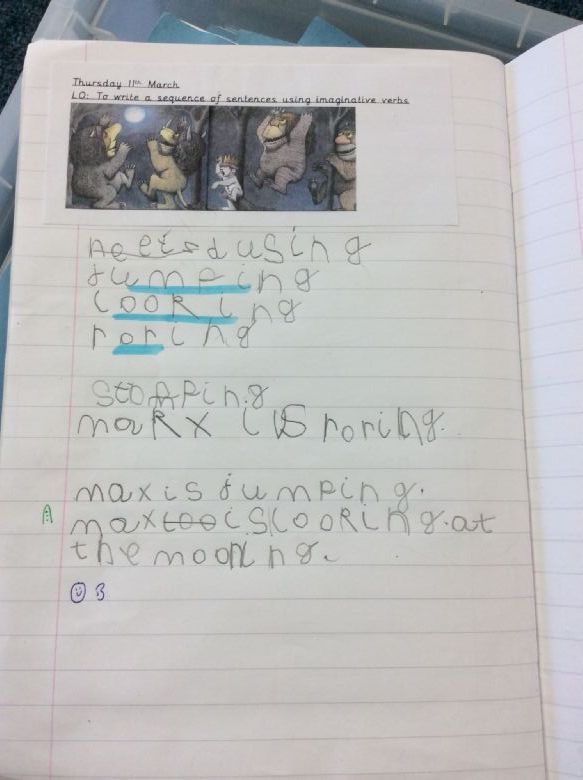 Thursday 11th March
LO: To write a sequence of sentences using imaginative verbs
jumping
looking
roring
stomping
marx is roring.
max is jumping.
A max too is looking.at
the mooning.
B